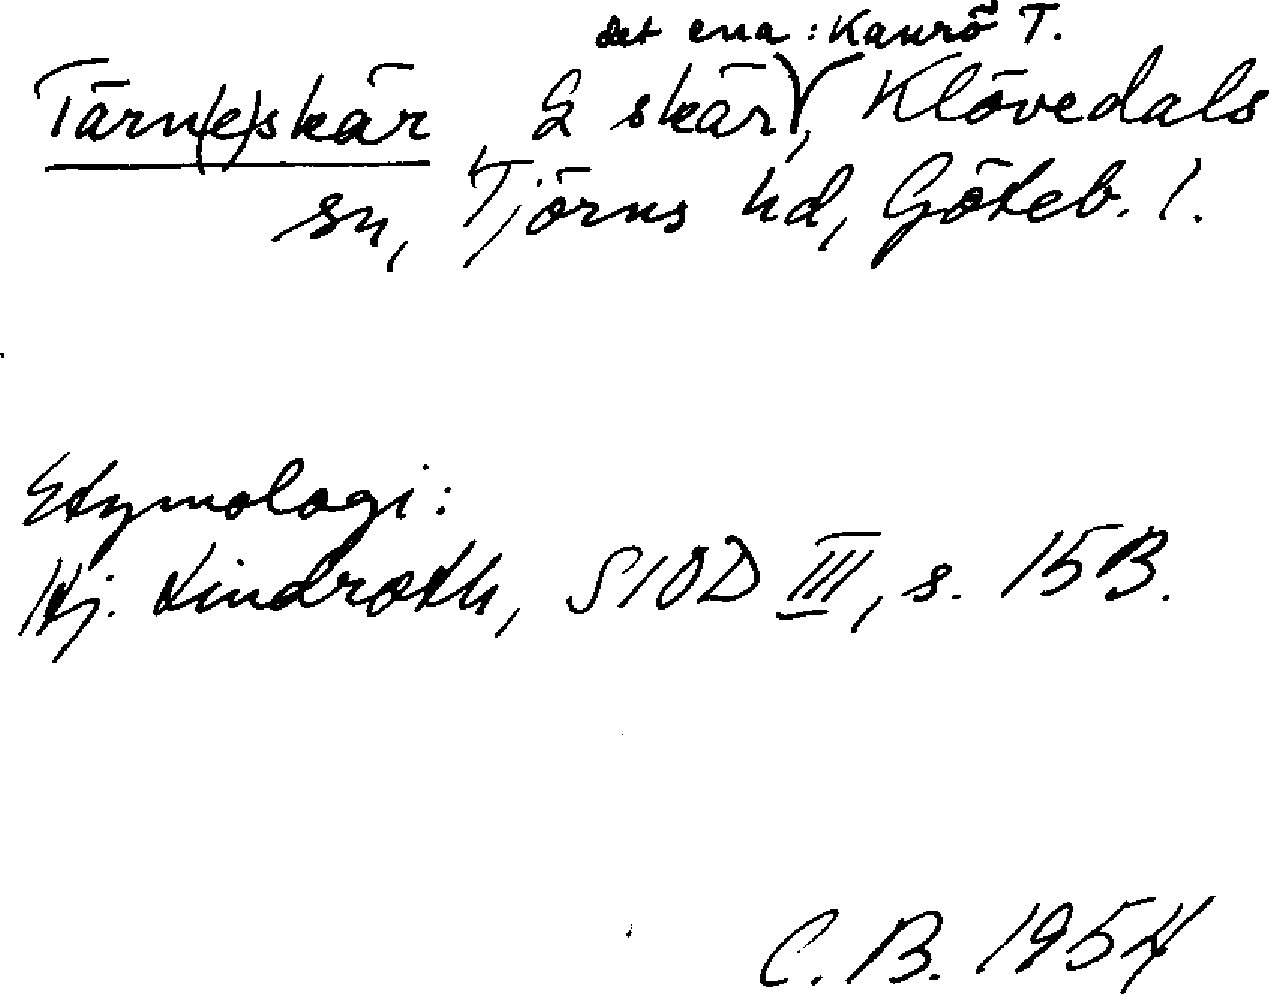 det ena: Kaurö T.
Tärn(e)skär 2 skär, Klövedals
sn, Tjörns hd, Göteb. l.
Etymologi:
Hj. Lindroth, SIOD III, s. 153.
C. B. 1954